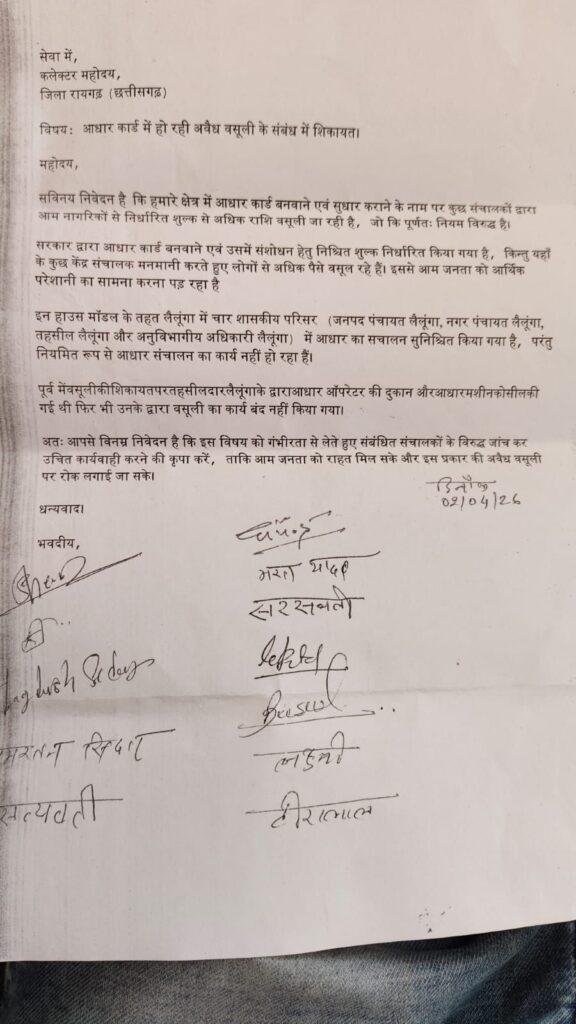 सेवा में,
कलेक्टर महोदय,
जिला रायगढ़ (छत्तीसगढ़)
विषय: आधार कार्ड में हो रही अवैध वसूली के संबंध में शिकायत।
महोदय,
सविनय निवेदन है कि हमारे क्षेत्र में आधार कार्ड बनवाने एवं सुधार कराने के नाम पर कुछ संचालकों द्वारा
आम नागरिकों से निर्धारित शुल्क से अधिक राशि वसूली जा रही है, जो कि पूर्णतः नियम विरुद्ध है।
सरकार द्वारा आधार कार्ड बनवाने एवं उसमें संशोधन हेतु निश्चित शुल्क निर्धारित किया गया है, किन्तु यहाँ
के कुछ केंद्र संचालक मनमानी करते हुए लोगों से अधिक पैसे वसूल रहे हैं। इससे आम जनता को आर्थिक
परेशानी का सामना करना पड़ रहा है
इन हाउस मॉडल के तहत लैलूंगा में चार शासकीय परिसर (जनपद पंचायत लैलूंगा, नगर पंचायत लैलूंगा,
तहसील लैलूंगा और अनुविभागीय अधिकारी लैलूंगा) में आधार का सचालन सुनिश्चित किया गया है, परंतु
नियमित रूप से आधार संचालन का कार्य नहीं हो रहा हैं।
पूर्व मेंवसूलीकीशिकायतपरतहसीलदारलैलूंगाके द्वाराआधार ऑपरेटर की दुकान औरआधारमशीनकोसीलकी
गई थी फिर भी उनके द्वारा वसूली का कार्य बंद नहीं किया गया।
अतः आपसे विनम्र निवेदन है कि इस विषय को गंभीरता से लेते हुए संबंधित संचालकों के विरुद्ध जांच कर
उचित कार्यवाही करने की कृपा करें, ताकि आम जनता को राहत मिल सके और इस प्रकार की अवैध वसूली
पर रोक लगाई जा सके।
दिनाँक
02/04/26
धन्यवाद।
भवदीय,
भरत यादव
सरस्वती
सत्यवती
हीरालाल